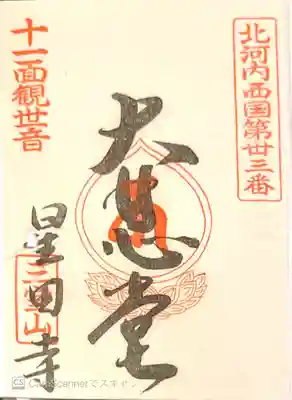 北河内西国第卅三番
大慈堂
十一面観世音
星田寺
三宝山
CS CamScannerでスキャン